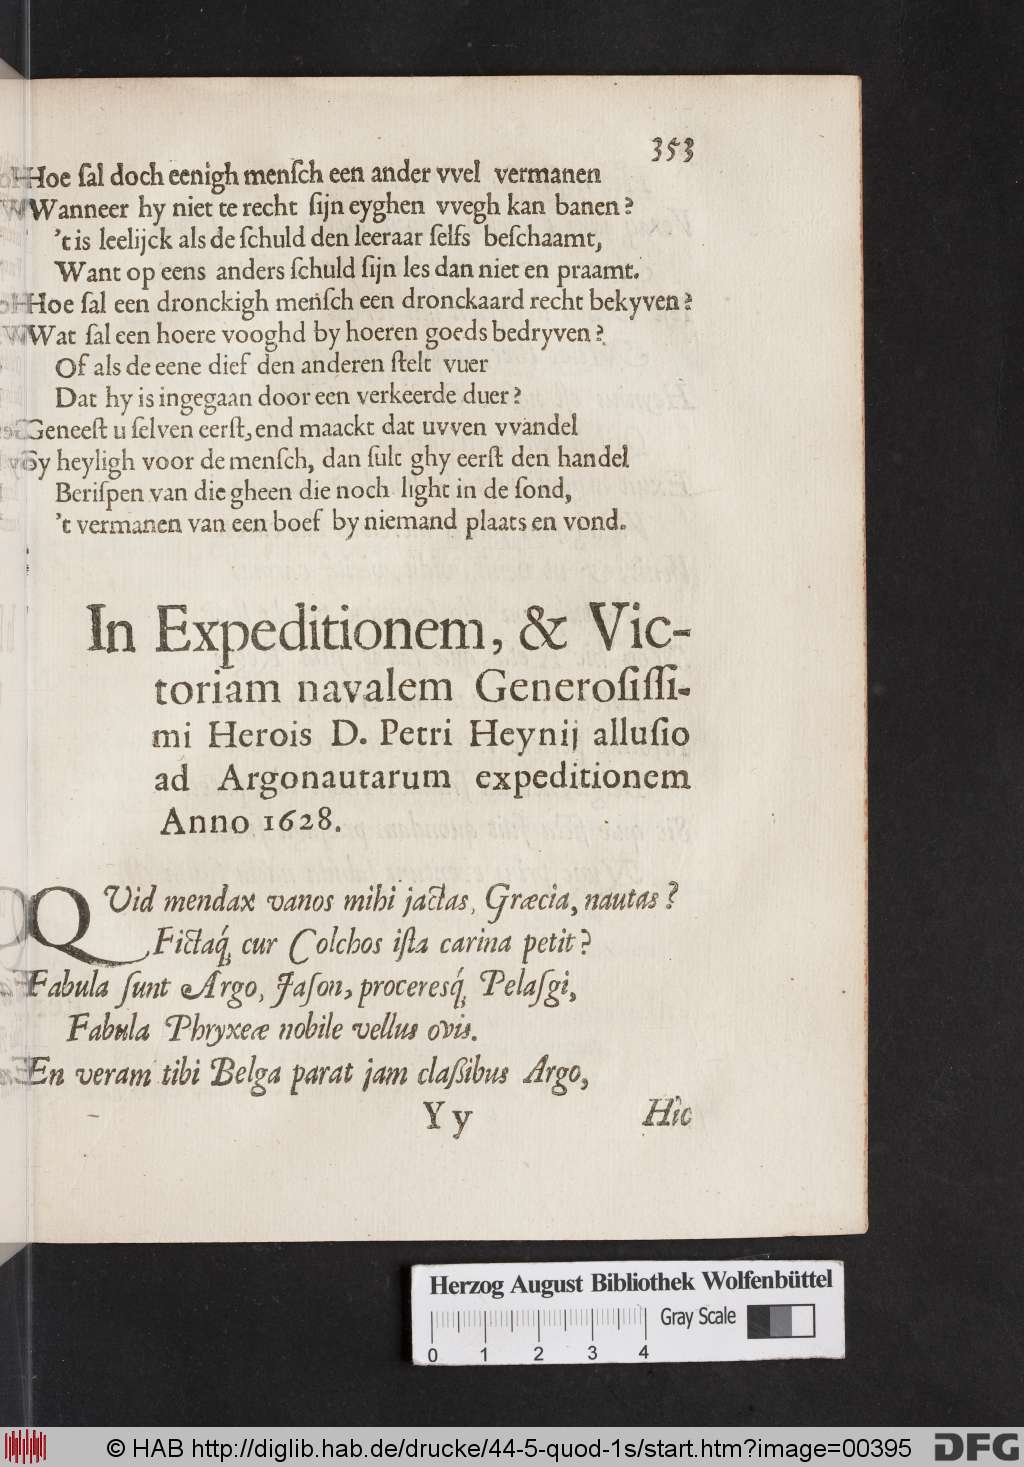 353
Hoe ſal doch eenigh menſch een ander vvel vermanen
Wanneer hy niet te recht ſijn eyghen vvegh kan banen?
't is leelijck als de ſchuld den leeraar ſelfs beſchaamt,
Want op eens anders ſchuld ſijn les dan niet en praamt.
Hoe ſal een dronckigh menſch een dronckaard recht bekyven?
Wat ſal een hoere vooghd by hoeren goeds bedryven?
Of als de eene dief den anderen ſtelt vuer
Dat hy is ingegaan door een verkeerde duer?
Geneeſt u ſelven eerſt, end maackt dat uvven vvandel
Sy heyligh voor de menſch, dan ſult ghy eerſt den handel
Beriſpen van die gheen die noch light in de ſond,
't vermanen van een boef by niemand plaats en vond.
In Expeditionem, & Vic-
toriam navalem Generoſiſſi-
mi Herois D. Petri Heynij alluſio
ad Argonautarum expeditionem
Anno 1628.
QVid mendax vanos mihi jactas, Græcia, nautas?
Fictaq́; cur Colchos iſta carina petit?
Fabula ſunt Argo, Jaſon, proceresq́; Pelaſgi,
Fabula Phryxeæ nobile vellus ovis.
En veram tibi Belga parat jam claßibus Argo,
Y y Hîc
Herzog August Bibliothek Wolfenbüttel
Gray Scale
0 1 2 3 4
© HAB http://diglib.hab.de/drucke/44-5-quod-1s/start.htm?image=00395 DFG